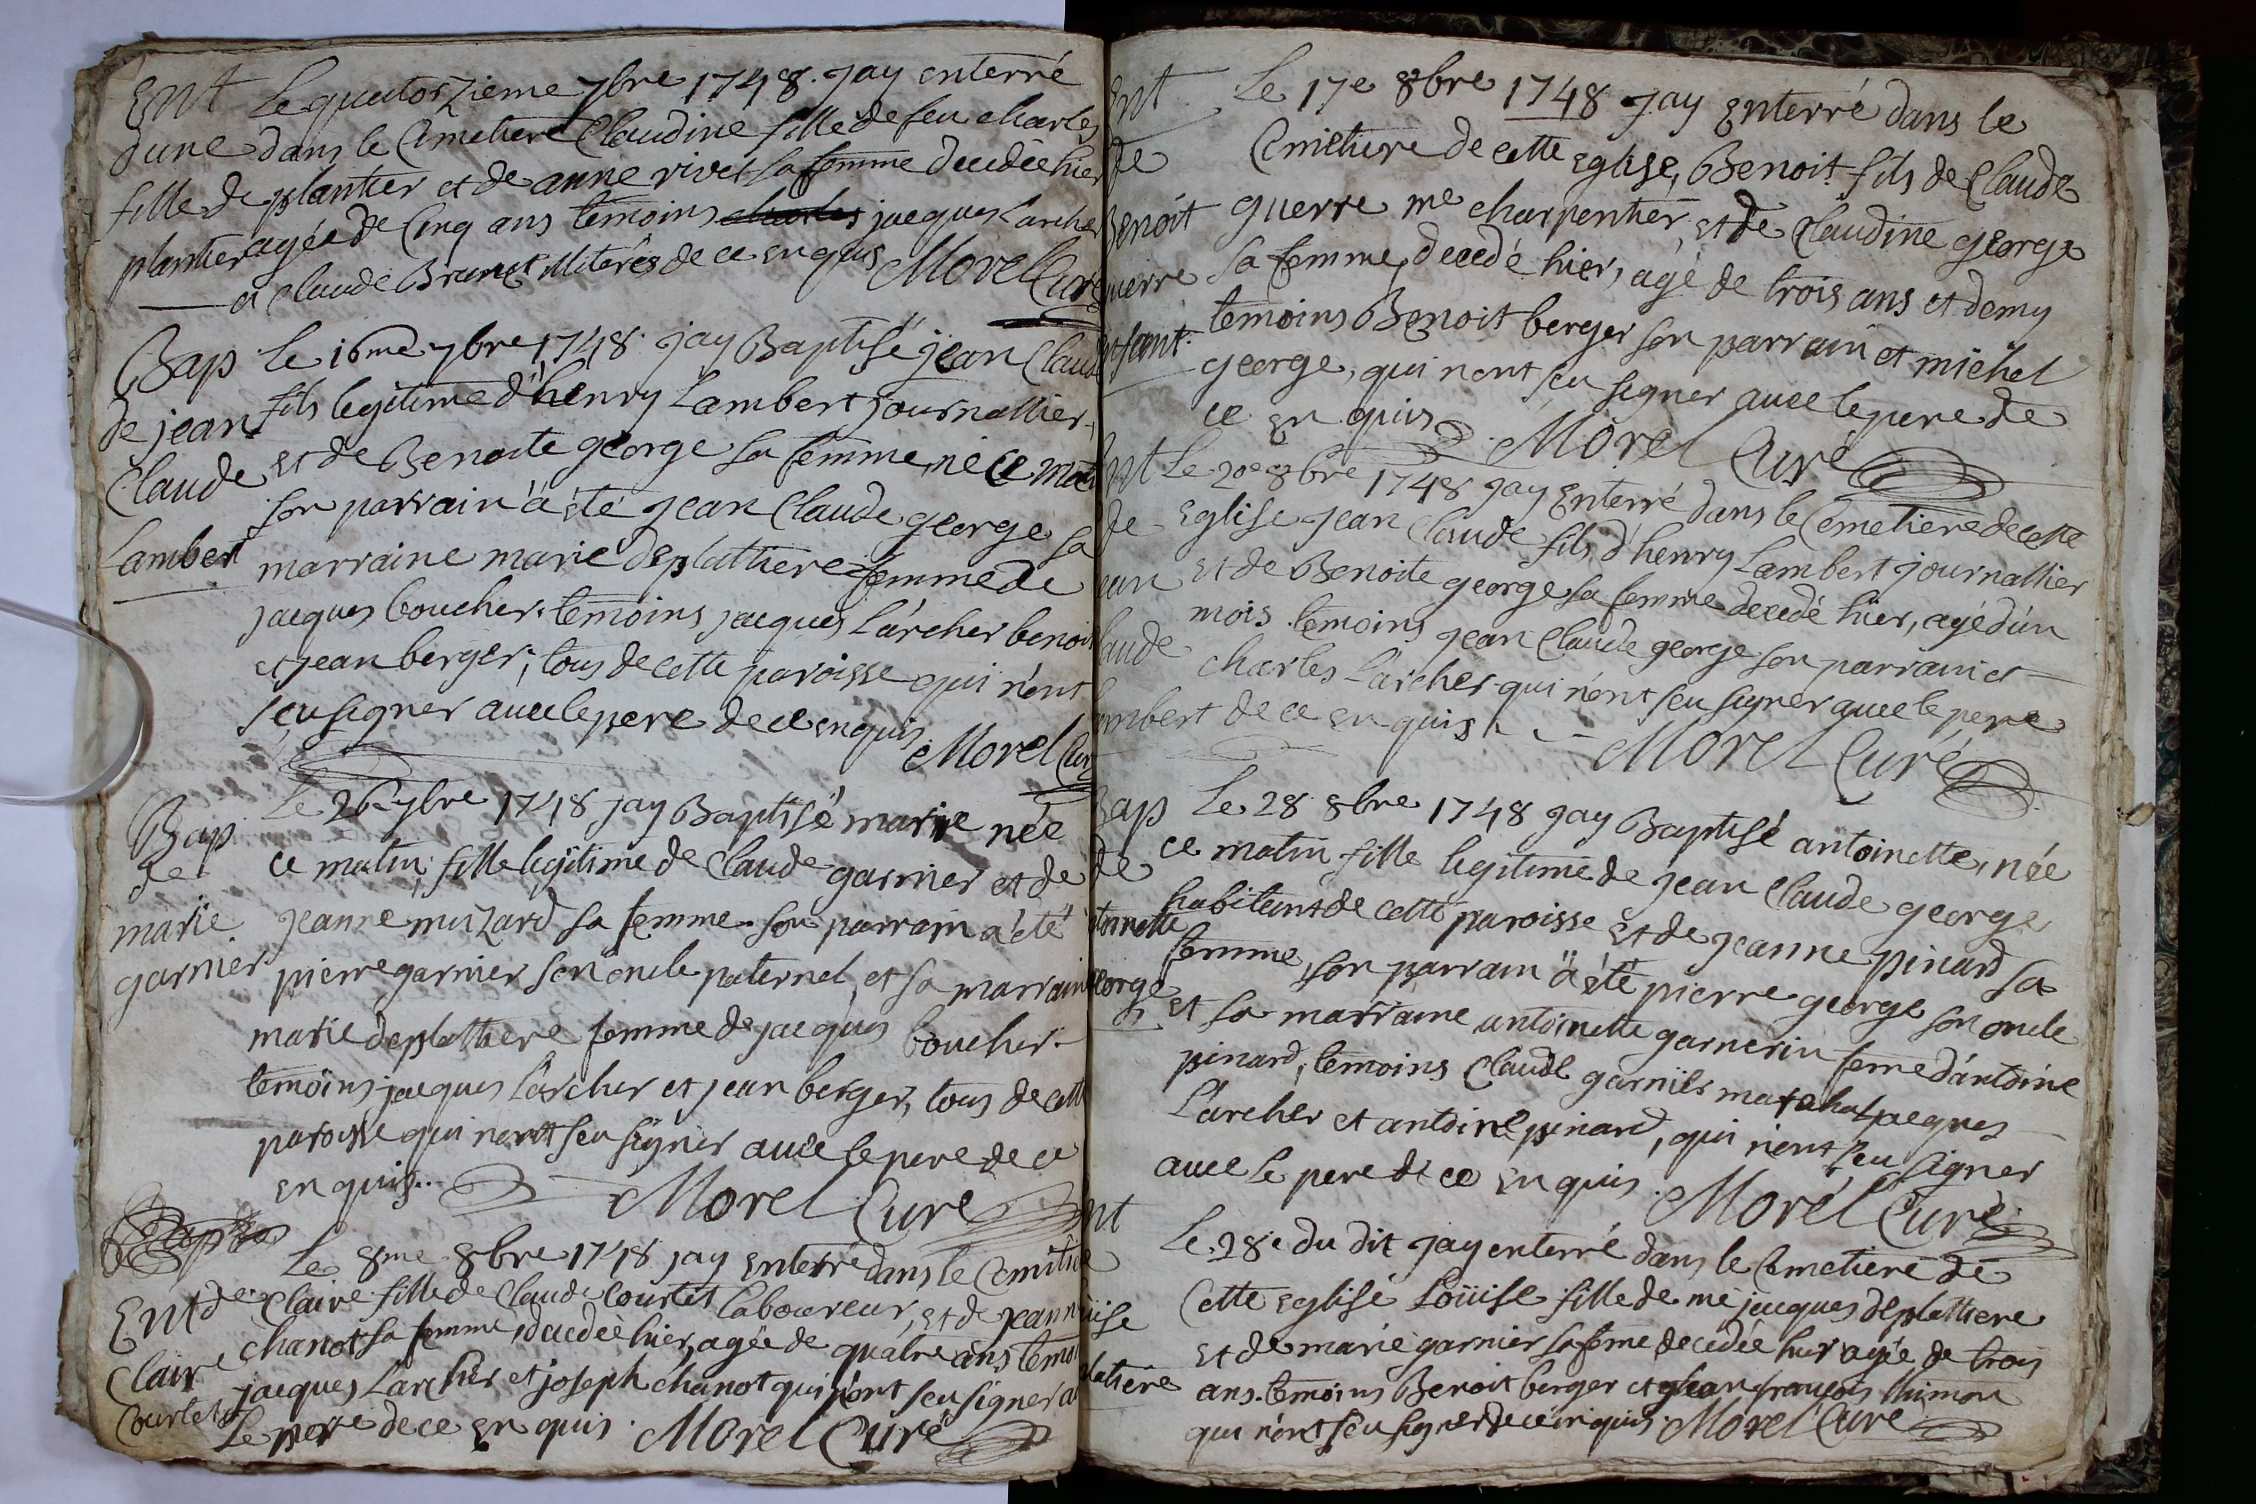 Ent Le quatorzieme 7bre 1748. jay enterré
dune dans le Cimetiere Claudine fille de feu charles
fille de plantier et de anne rivet sa femme decedée hier
plantier agée de Cinq ans temoins charles jacques Larcher
et Claude Brunet illiterés de ce enquis Morel Curé
Bap le 16me 7bre 1748 jay Baptisé jean Claude
de jean fils legitime d'henry Lambert journallier,
Claude et de Benoite george sa femme, né ce matin
son parrain à été jean Claude george sa
Lambert marraine marie deplattiere femme de
jacques boucher. temoins jacques Larcher benoit
et jean berger, tous de cette paroisse qui n'ont
seu signer avec le pere de ce enquis
Morel Curé
Le 26 7bre 1748 jay Baptisé marie née
Bap
de ce matin, fille legitime de Claude garnier et de
marie jeanne muzard sa femme. son parrain a été
garnier pierre garnier son oncle paternel, et sa marraine
marie deplattiere femme de jacques boucher
temoins jacques Larcher et jean berger, tous de cette
paroisse qui n'ont seu signer avec le pere de ce
enquis.. Morel Curé
Le 8me 8bre 1748 jay enterré dans le Cemitiere
Ent de Claire fille de Claude Courtet laboureur, et de jeanne
Claire chanot sa femme, decedée hier, agée de quatre ans temoins
Courtet jacques Larcher et joseph chanot qui n'ont seu signer avec
Le pere de ce enquis. Morel Curé
Ent Le 17e 8bre 1748 jay Enterré dans le
de Cemitiere de cette Eglise, Benoit fils de Claude
Benoit guerre me charpentier, et de Claudine george
guerre sa femme, decedé hier, agé de trois ans et demy
enfant. temoins Benoit berger son parrain et michel
george, qui n'ont seu signer avec le pere de
ce enquis. Morel Curé
Ent Le 20e 8bre 1748 jay Enterré dans le Cemetiere de cette
de Eglise jean Claude fils d'henry Lambert journallier
jean et de Benoite george sa femme decedé hier, agé d'un
Claude mois. temoins jean Claude george son parrain et
charles Larcher qui n'ont seu signer avec le pere
Lambert de ce enquis.
Morel Curé
Bap Le 28 8bre 1748 jay Baptisé antoinette, née
de ce matin fille legitime de jean Claude george
antoinette habitant de cette paroisse et de jeanne pinard sa
george femme, son parrain à été pierre george son oncle
et sa marraine antoinette garnerin feme d'antoine
pinard, temoins Claude garnier marechal jacques
Larcher et antoine pinard, qui n'ont seu signer
avec le pere de ce enquis. Morel Curé
Ent Le 28e du dit jay enterré dans le Cemetiere de
Cette Eglise Loüise fille de me jacques deplattiere
Loüise et de marie garnier sa feme decedée hier agée de trois
platiere ans. temoins Benoit berger et jean françois thimon
qui n'ont seu signer de ce enquis. Morel Curé